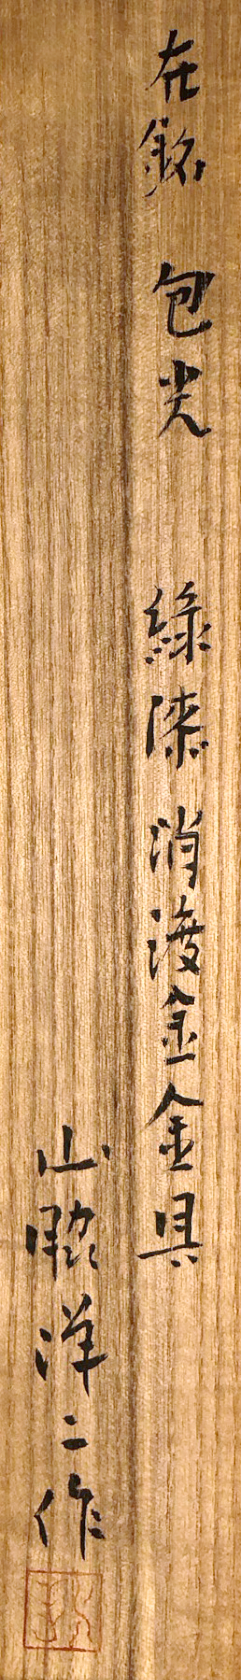 在銘 包光 緑漆消渡金金具
山脇洋二作